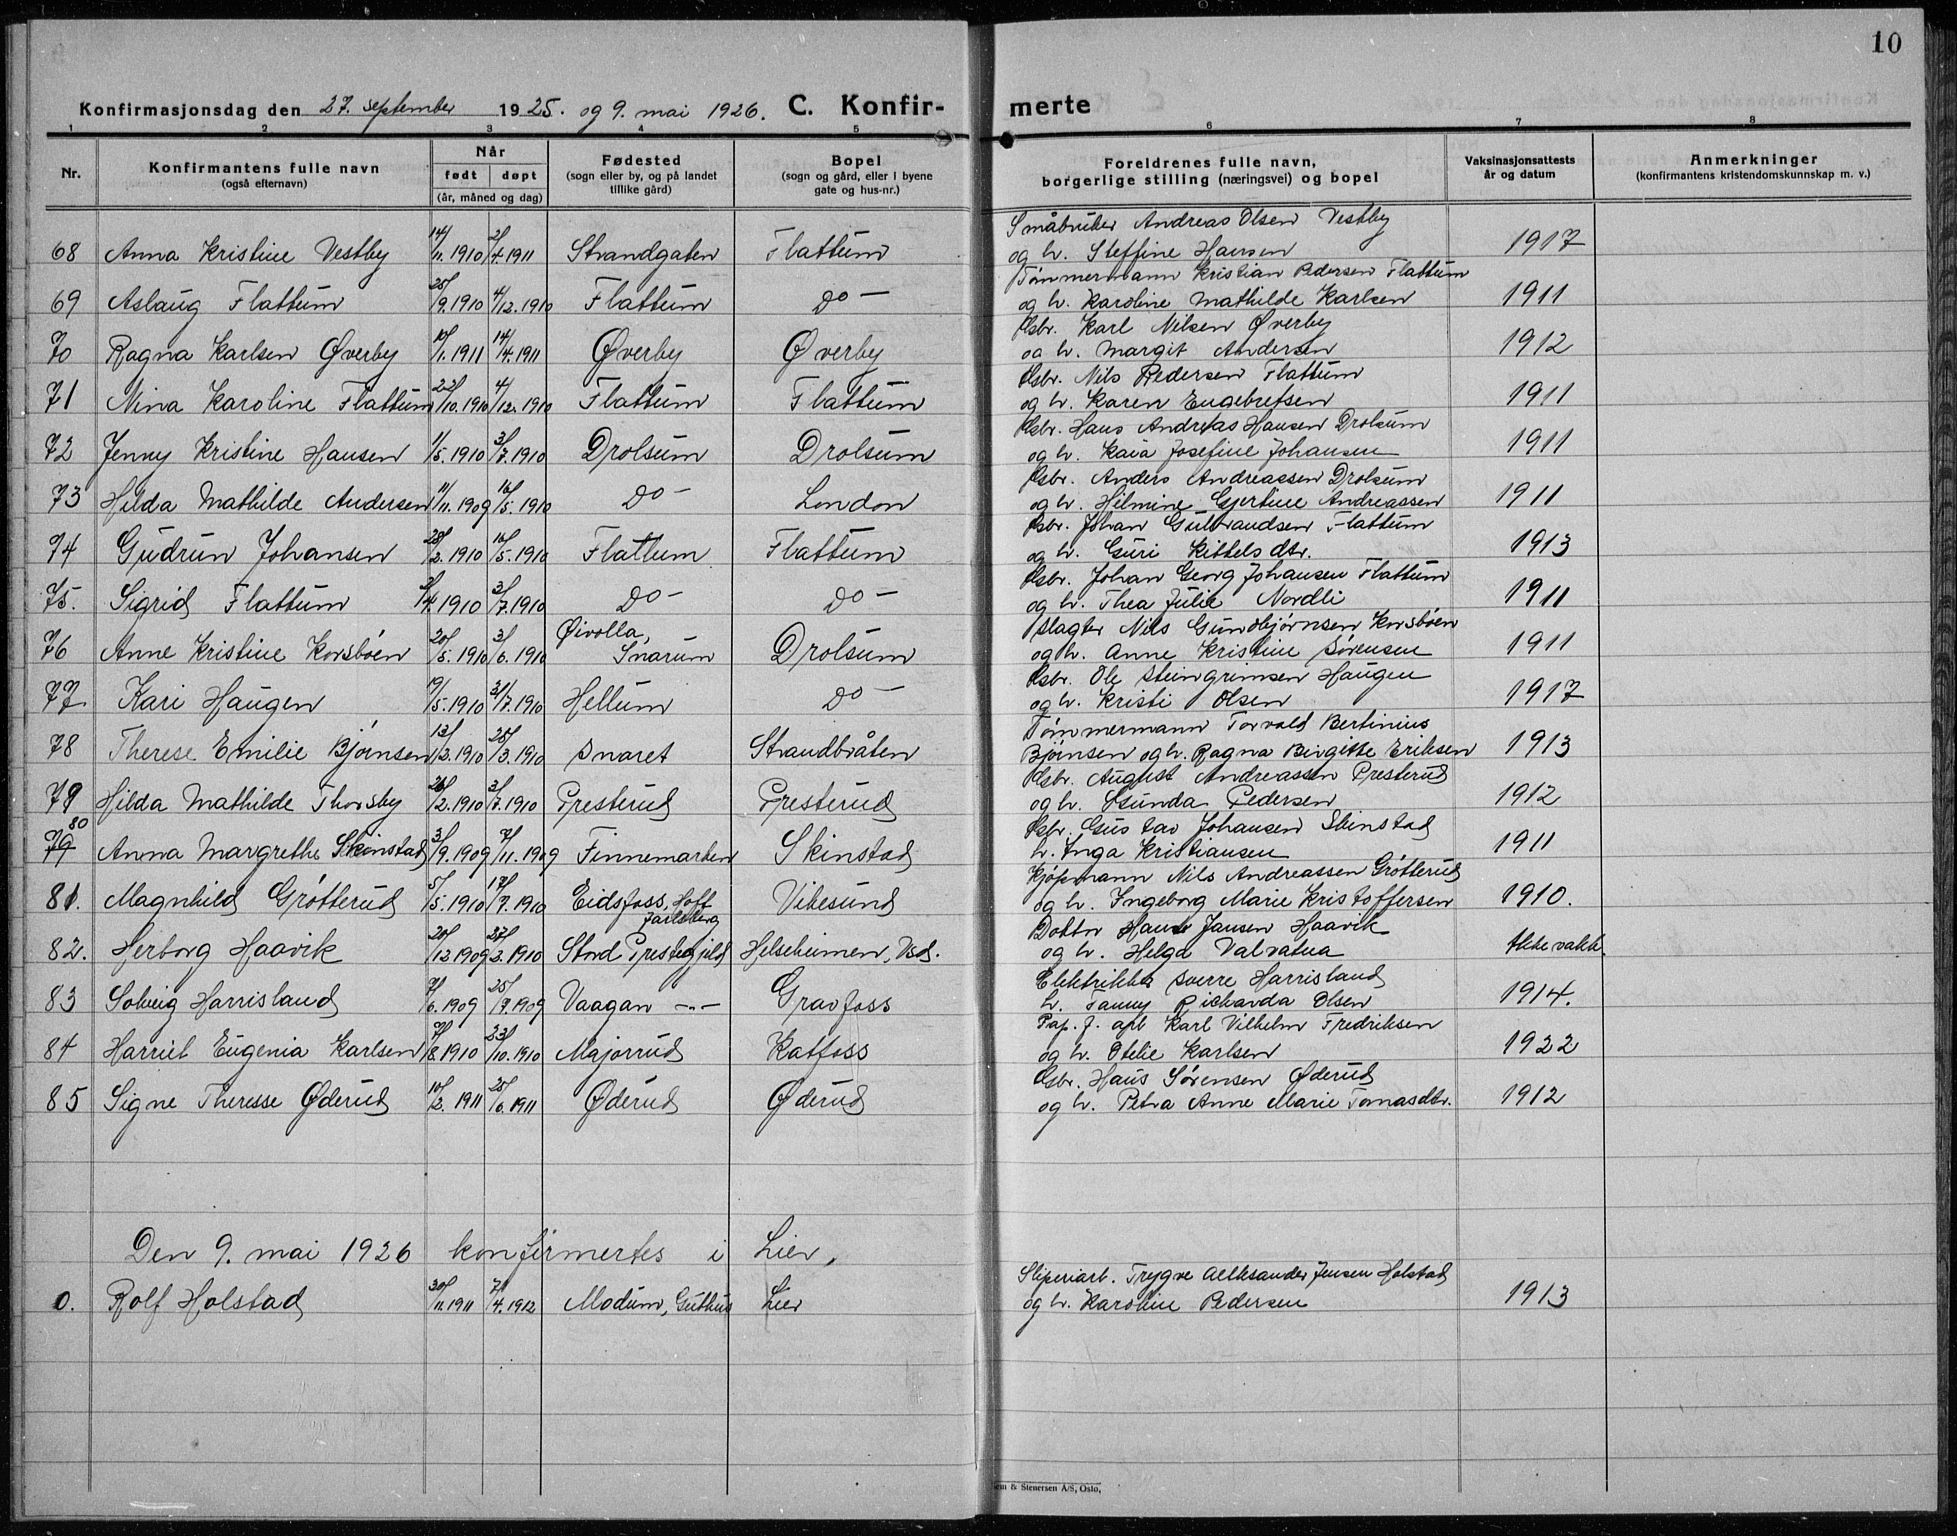 10
Konfirmasjonsdag den 27. september 1925. og 9. mai 1926. C. Konfir- merte
1 2 3 4 5 6 7 8
Nr. Konfirmantens fulle navn (også efternavn) Når født døpt (år, måned og dag) Fødested (sogn eller by, og på landet tillike gård) Bopel (sogn og gård, eller i byene gate og hus-nr.) Foreldrenes fulle navn, borgerlige stilling (næringsvei) og bopel Vaksinasjonsattests år og datum Anmerkninger (konfirmantens kristendomskunnskap m. v.)
Småbruker Andreas Olsen Vestby
68 Anna Kristine Vestby 14/11. 1910 2/4. 1911 Strandgaten Flattum og h. Steffine Hansen 1917
Tømmermann Kristian Pedersen Flattum
69 Aslaug Flattum 25/9. 1910 4/12. 1910 Flattum Do — og h. Karoline Mathilde Karlsen 1911
Gsbr. Karl Nilsen Øverby
70 Ragna Karlsen Øverby 10/1. 1911 14/4. 1911 Øverby Øverby og h. Margit Andersen 1912
Gsbr. Nils Pedersen Flattum
71 Nina Karoline Flattum 22/10. 1910 4/12. 1910 Flattum Flattum og h. Karen Engebretsen 1911
Gsbr. Hans Andreas Hansen Drolsum
72 Jenny Kristine Hansen 1/5. 1910 3/7. 1910 Drolsum Drolsum og h. Kaia Josefine Johansen 1911
Gsbr. Anders Andreassen Drolsum
73 Hilda Mathilde Andersen 11/11. 1909 16/5. 1910 Do — London og h. Hilmine Gjertine Andreassen 1911
Gsbr. Johan Gulbrandsen Flattum
74 Gudrun Johansen 28/2. 1910 16/5. 1910 Flattum Flattum og h. Guri Kittelsdtr. 1913
Gsbr. Johan Georg Johansen Flattum
75. Sigrid Flattum 2/4. 1910 3/7. 1910 Do — Do — og h. Thea Julie Nordli 1911
Slagter Nils Gundbjørnsen Korsbøen
76 Anne Kristine Korsbøen 20/5. 1910 3/6. 1910 Øivolla, Snarum Drolsum og h. Anne Kristine Sørensen 1911
Gsbr. Ole Steingrimsen Haugen
77 Kari Haugen 19/5. 1910 31/7. 1910 Hellum Do — og h. Kristi Olsen 1917
Tømmermann Torvald Bertinius
78 Therese Emilie Bjørnsen 13/2. 1910 25/3. 1910 Snaret Strandbråten Bjørnsen og h. Ragna Birgitte Eriksen 1913
Gsbr. August Andreassen Presterud
79 Hilda Mathilde Thorsby 26/2. 1910 3/7. 1910 Presterud Presterud og h. Gunda Pedersen 1912
Gsbr. Gustav Johansen Skinstad
79 80 Anna Margrethe Skinstad 3/9. 1909 7/11. 1909 Finnemarken Skinstad h. Inga Kristiansen 1911
Kjøpmann Nils Andreassen Grøtterud
81. Magnhild Grøtterud 5/5. 1910 17/7. 1910 Eidsfoss, Hoff Jarlsberg Vikesund og h. Ingeborg Marie Kristoffersen 1910.
Doktor Hans Jansen Haavik
82. Herborg Haavik 20/12 1909 27/2. 1910 Stord Prestegjeld Helseheimen, Vsd. og h. Helga Valvatna Ikke vakk.
Elektriker Sverre Harrisland
83 Solveig Harrisland 7/6. 1909 25/7. 1909 Vaagan — " — Gravfoss h. Fanny Richarda Olsen 1914.
Pap. f. arb Karl Vilhelm Fredriksen
84 Harriet Eugenia Karlsen 7/8. 1910 23/10. 1910 Majorrud Katfoss og h. Otelie Karlsen 1922
Gsbr. Hans Sørensen Øderud
85 Signe Theresse Øderud 10/2. 1911 25/6. 1911 Øderud Øderud og h. Petra Anne Marie Tomasdtr. 1912
Den 9. mai 1926 konfirmertes i Lier.
Sliperiarb. Trygve Alleksander Jensen Holstad
0. Rolf Holstad 30/11. 1911 7/4. 1912 Modum, Guthus Lier og h. Karoline Pedersen 1913
& Stenersen A/S, Oslo.